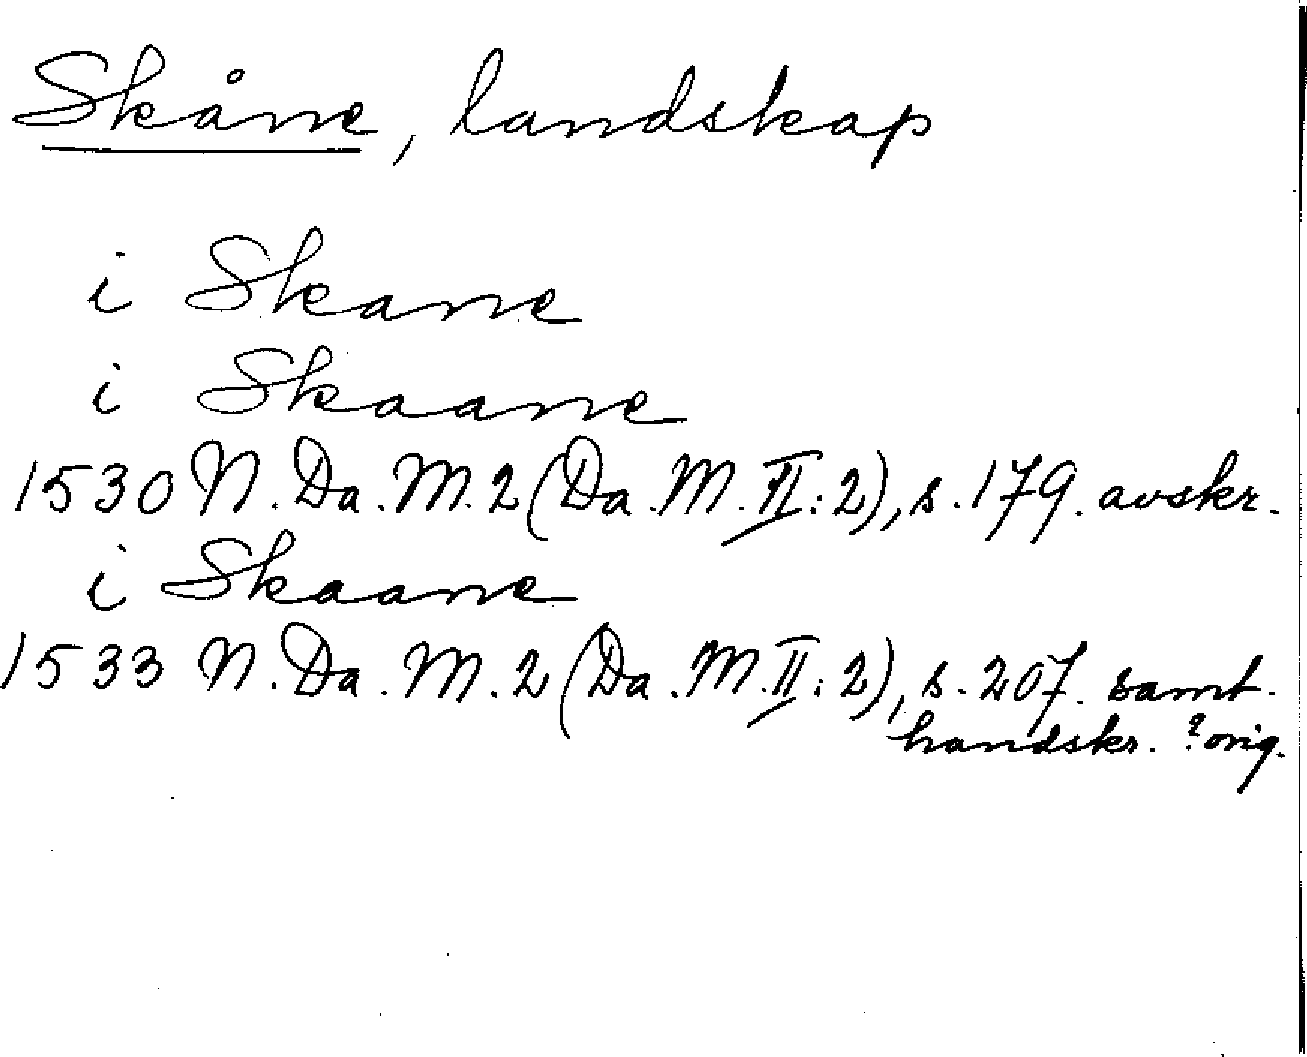 Skåne, landskap
i Skane
i Skaane
1530 N. Da. M. 2 (Da. M. II: 2), s. 179. avskr.
i Skaane
1533 N. Da. M. 2 (Da. M. II: 2), s. 207. samt.
handskr. ? orig.